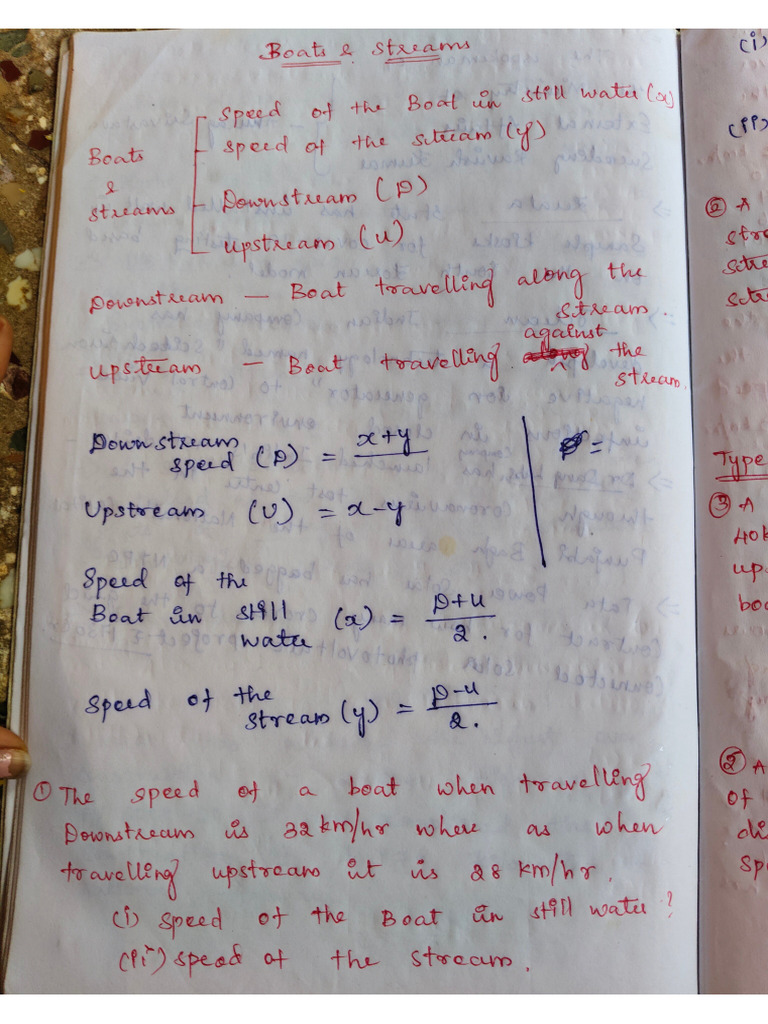 Boats & Streams
Speed of the Boat in still water (x)
Speed of the stream (y)
Boats
&
streams
Downstream (D)
upstream (U)
Downstream — Boat travelling along the
stream.
against
upstream — Boat travelling the
stream.
Downstream
speed (D) = x+y
D =
Upstream (U) = x-y
Speed of the
Boat in still
water (x) = D+U
2.
Speed of the
stream (y) = D-U
2.
① The speed of a boat when travelling
Downstream is 32 km/hr where as when
travelling upstream it is 28 km/hr.
(i) Speed of the Boat in still water?
(ii) speed of the stream.
(i)
(ii)
② A
stre
stre
stre
Type
③ A
40k
up
boa
② A
of
di
Spe